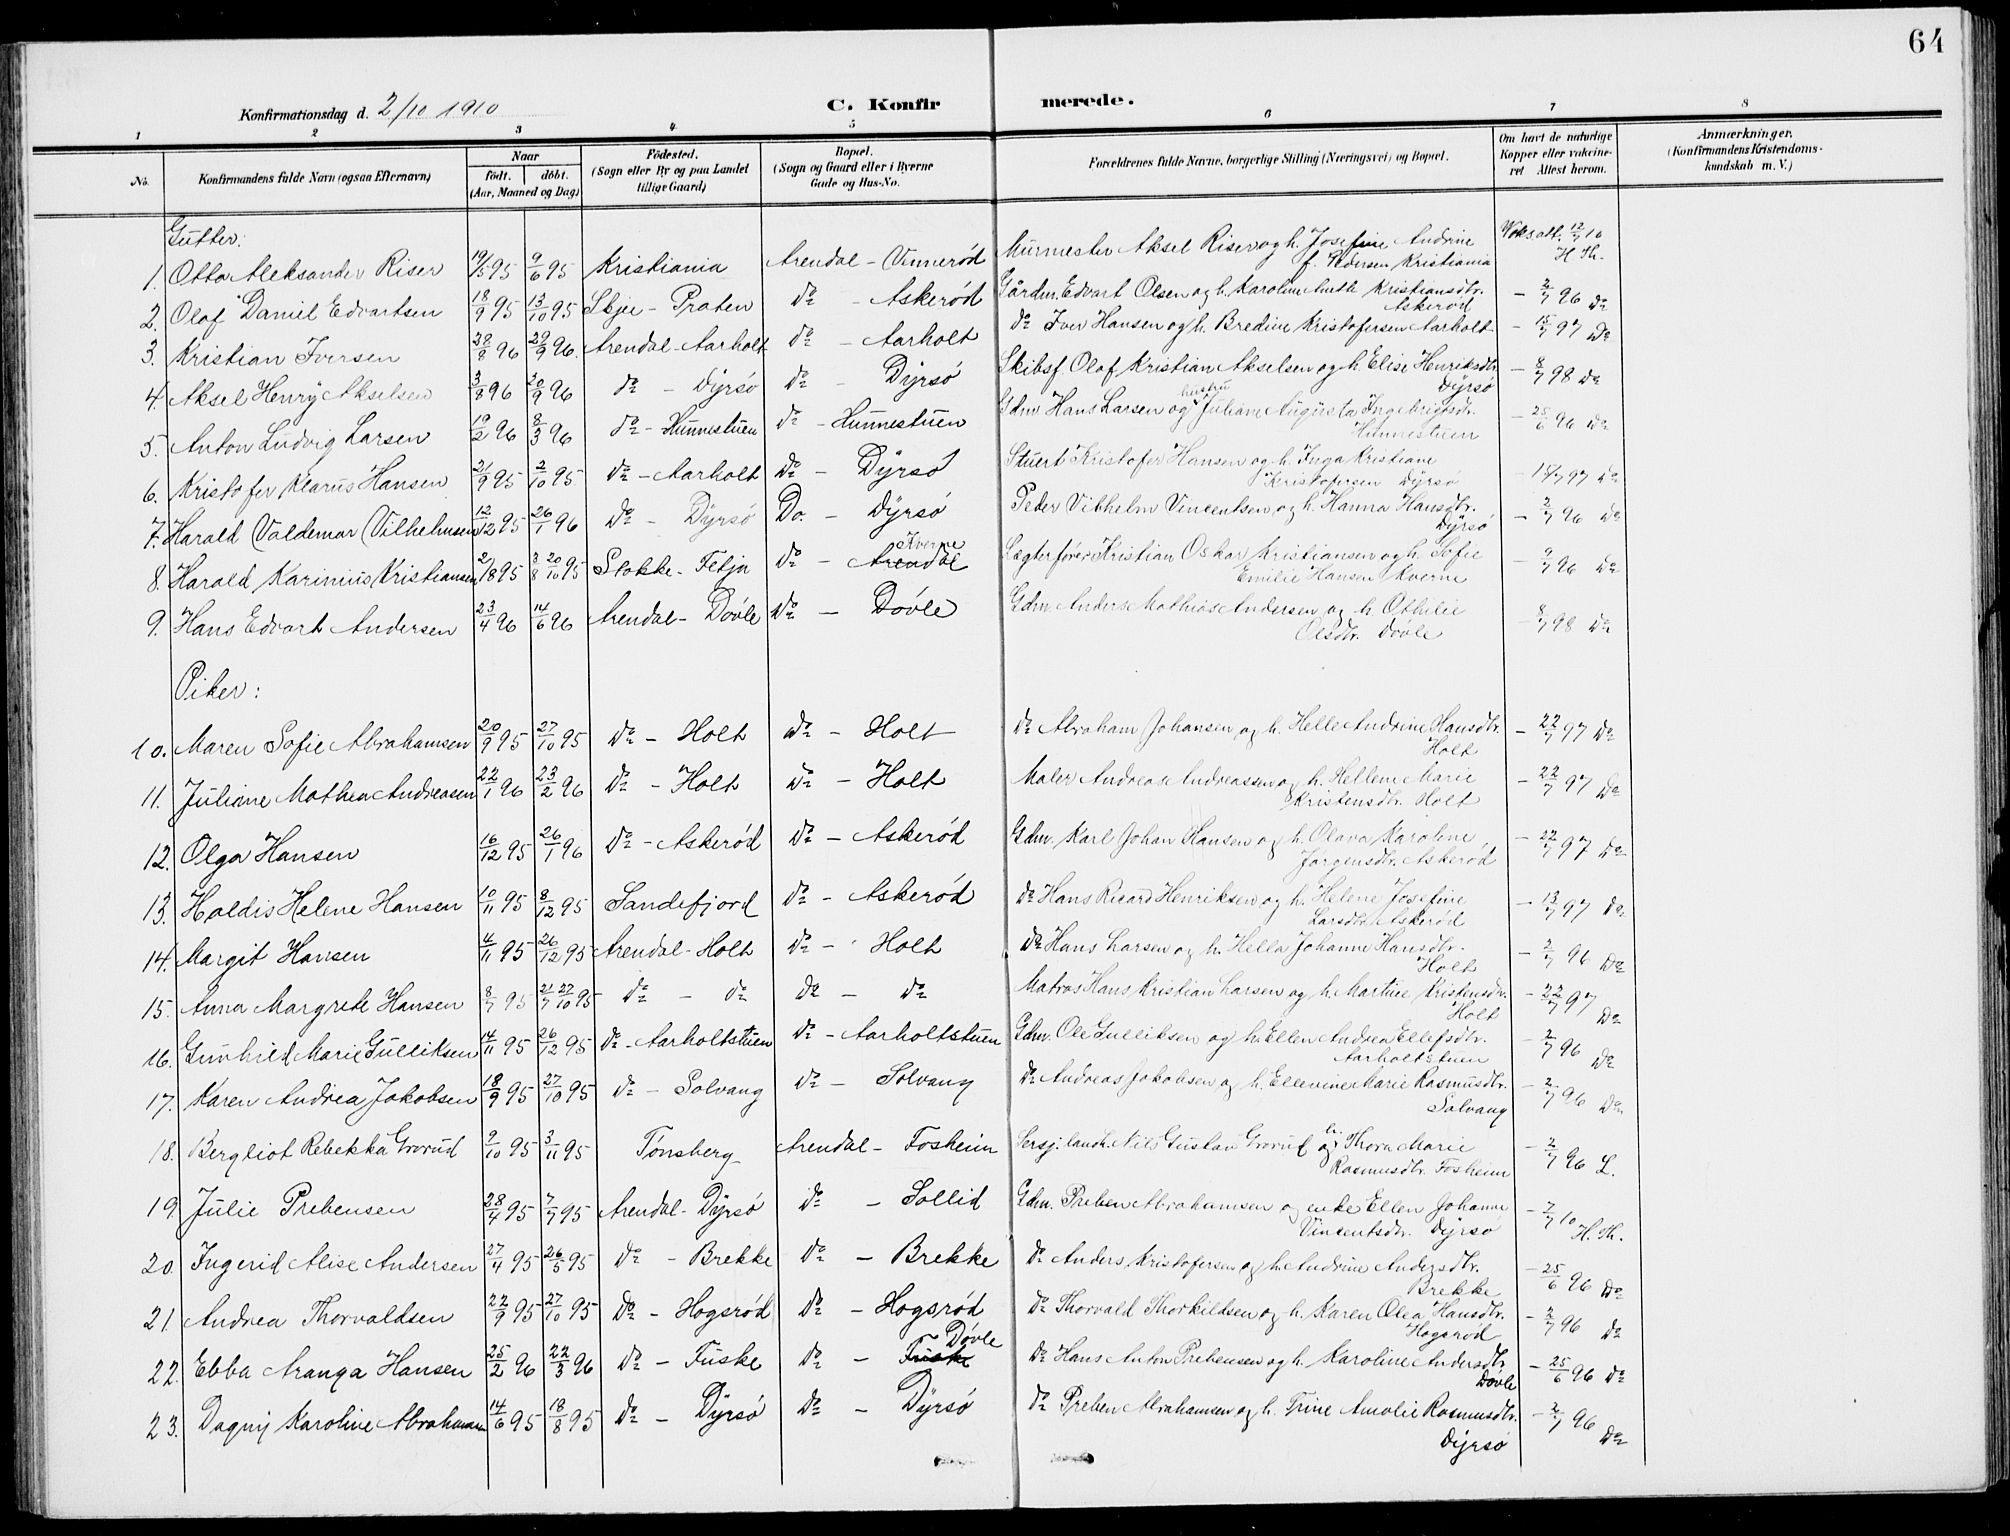 64
Konfirmationsdag d. 2/10 1910
C. Konfirmerede.
1 2 3 4 5 6 7 8
No. Konfirmandens fulde Navn (ogsaa Efternavn) Naar født. døbt. (Aar, Maaned og Dag) Fødested. (Sogn eller By og paa Landet tillige Gaard) Bopæl. (Sogn og Gaard eller i Byerne Gade og Hus-No. Forældrenes fulde Navne, borgerlige Stilling (Næringsvei) og Bopæl. Om havt de naturlige Kopper eller vakcineret Attest herom. Anmærkninger. (Konfirmandens Kristendomskundskab m. V.)
Gutter:
1. Otto Aleksander Riser 19/5 95 9/6 95 Kristiania Arendal - Vinnerød Murmester Aksel Riser og h. Josefine Andrine f. Pedersen Kristiania Vaks.att. 12/7 10 H.Th.
2. Olaf Daniel Edvartsen 18/9 95 13/10 95 Skjee - Praten do - Askerød Gårdm. Edvart Olsen og h. Karoline Kristiansdtr. Askerød - 2/7 96 do
3. Kristian Iversen 28/8 96 29/9 96 Arendal - Aarholt do - Aarholt do Iver Hansen og h. Bredine Kristofersen Aarholt - 15/7 97 do
4. Aksel Henry Akselsen 3/8 96 20/9 96 do - Dyrsø do - Dyrsø Skibsf. Olaf Kristian Akselsen og h. Elise Henriksdtr. Dyrsø - 8/7 98 do
5. Anton Ludvig Larsen 19/2 96 8/3 96 do - Hunnestuen do - Hunnestuen Gdm. Hans Larsen og hustru Juliane Augusta Ingebrigtsdtr. Hunnestuen - 25/6 96 do
6. Kristofer Klarus Hansen 21/9 95 2/10 95 do - Aarholt do - Dyrsø Stuert Kristofer Hansen og h. Inga Kristiane Kristofersen Dyrsø - 15/7 97 do
7. Harald Valdemar Vilhelmsen 12/12 95 26/1 96 do - Dyrsø Do. - Dyrsø Peder Vilhelm Vincentsen og h. Hanna Hansdtr. Dyrsø - 2/7 96 do
8. Harald Karinius Kristiansen 2/8 95 8/8 20/10 95 Stokke - Feljo do - Arendal Kverne Lægterfører Kristian Oskar Kristiansen og h. Sofie Emilie Hansen Kverne - 9/7 96 do
9. Hans Edvart Andersen 23/4 96 14/6 96 Arendal - Døvle do - Døvle Gdm. Anders Mathias Andersen og h. Othilie Olsdtr. Døvle - 8/7 98 do
Piker:
10. Maren Sofie Abrahamsen 20/9 95 27/10 95 do - Holt do - Holt do Abraham Johansen og h. Helle Andrine Hansdtr. Holt - 22/7 97 do
11. Juliane Mathea Andreasen 22/1 96 23/2 96 do - Holt do - Holt Maler Andreas Andreassen og h. Hellene Marie Kristensdtr. Holt - 22/7 97 do
12. Olga Hansen 16/12 95 26/1 96 do - Askerød do - Askerød Gdm. Karl Johan Hansen og h. Olava Karoline Jørgensdtr. Askerød - 22/7 97 do
13. Haldis Helene Hansen 10/11 95 8/12 95 Sandefjord do - Askerød do Hans Ricard Henriksen og h. Helene Josefine Larsdtr. Askerød - 13/7 97 do
14. Margit Hansen 4/11 95 26/12 95 Arendal - Holt do - Holt do Hans Larsen og h. Hella Johanne Hansdtr. Holt - 2/7 96 do
15. Anna Margrete Hansen 8/7 95 21/7 27/10 95 do - do do - do Matros Hans Kristian Larsen og h. Martine Kristensdtr. Holt - 22/7 97 do
16. Gunhild Marie Gulliksen 14/11 95 26/12 95 do - Aarholtstuen do - Aarholtstuen Gdm. Ole Gulliksen og h. Ellen Andrea Ellefsdtr. Aarholtstuen - 2/7 96 do
17. Karen Andrea Jakobsen 18/9 95 27/10 95 do - Solvang do - Solvang do Andreas Jakobsen og h. Ellevine Marie Rasmusdtr. Solvang - 2/7 96 do
18. Bergliot Rebekka Grorud 9/10 95 3/11 95 Tønsberg Arendal - Fosheim Sersj. landh. Nils Gustav Grorud og h. Thora Marie Rasmusdtr. Fosheim - 2/7 96 L.
19. Julie Prebensen 28/4 95 7/7 95 Arendal - Dyrsø do - Sollid Gdm. Preben Abrahamsen og enke Ellen Johanne Vincentsdtr. Dyrsø - 7/7 10 H.Th.
20. Ingerid Alise Andersen 27/4 95 26/5 95 do - Brekke do - Brekke do Anders Kristofersen og h. Andrine Andersdtr. Brekke - 25/6 96 do
21. Andrea Thorvaldsen 22/9 95 27/10 95 do - Hogsrød do - Hogsrød do Thorvald Thorkildsen og h. Karen Olea Hansdtr. Hogsrød - 2/7 96 do
22. Ebba Aranga Hansen 25/2 96 22/3 96 do - Fuske do - Fuske Døvle do Hans Anton Prebensen og h. Karoline Andersdtr. Døvle - 25/6 96 do
23. Dagny Karoline Abrahamsen 14/6 95 18/8 95 do - Dyrsø do - Dyrsø do Preben Abrahamsen og h. Trine Amalie Rasmusdtr. Dyrsø - 2/7 96 do